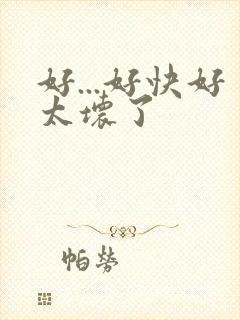 好...好快好
太壞了
帕勞